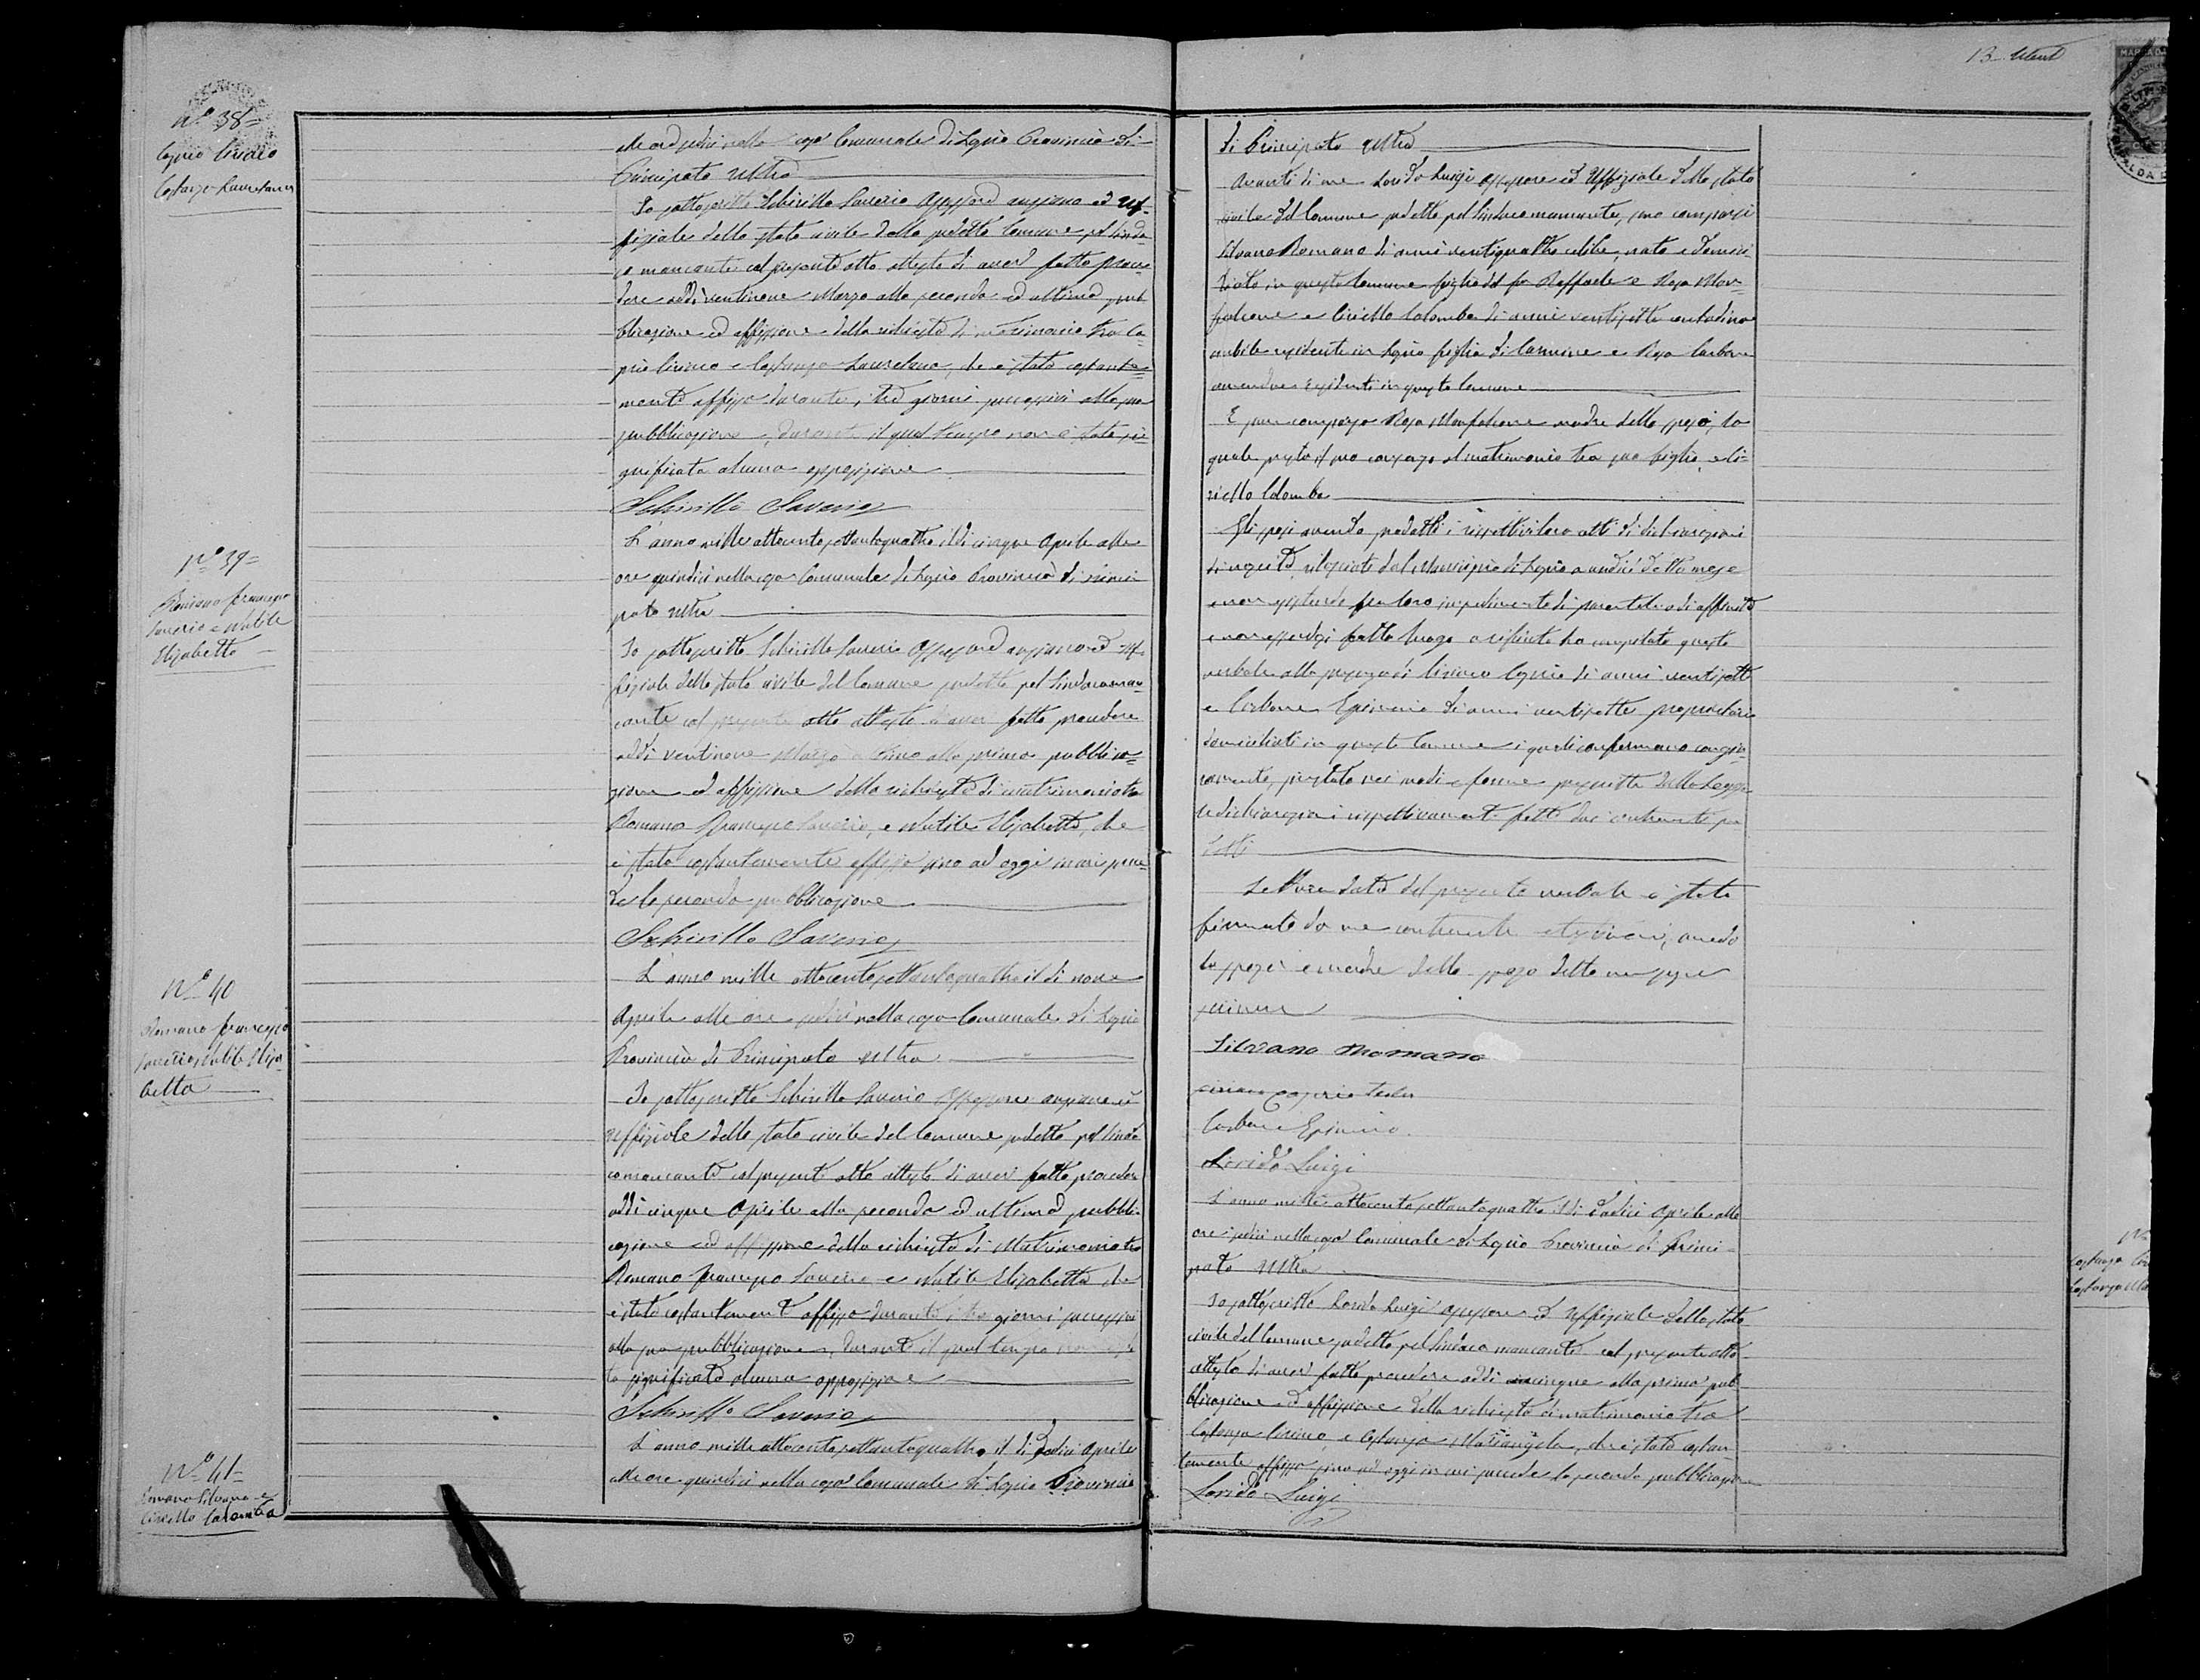 N.º 38=
Cipriano
Costanzo Lauretana
alle ore sedici nella casa Comunale di Lapio Provincia di
Principato Ultra
Io sottoscritto Schirillo Saverio Assessore anziano ed Uf-
fiziale dello stato civile della sudetto Comune pel Sinda-
co mancante col presente atto attesto di aver fatto proce-
dere addì ventinove Marzo alla seconda ed ultima pub-
blicazione ed affissione della richiesta di matrimonio tra
e Costanzo Lauretana, che è stata costante-
mente affisso durante i tre giorni successivi alla sua
pubblicazione, durante il qual tempo non è stata si-
gnificata alcuna opposizione
Schirillo Saverio
N.º 39=
Romano Francesco
Saverio e
Elisabetta
L'anno mille ottocento settantaquattro il dì cinque Aprile alle
ore quindici nella casa Comunale di Lapio Provincia di Princi-
pato Ultra
Io sottoscritto Schirillo Saverio Assessore anziano ed Uf-
fiziale dello stato civile del Comune sudetto pel Sindaco man-
cante col presente atto attesto di aver fatto procedere
addì ventinove Marzo alla prima pubblica-
zione ed affissione della richiesta di matrimonio tra
Romano Francesco Saverio, e Elisabetta, che
è stata costantemente affisso sino ad oggi in cui succe-
de la seconda pubblicazione
Schirillo Saverio
N.º 40
Romano Francesco
Saverio e Elisa-
betta
L'anno mille ottocento settantaquattro il dì nove
Aprile alle ore sedici nella casa Comunale di Lapio
Provincia di Principato Ultra
Io sottoscritto Schirillo Saverio Assessore anziano ed
Uffiziale dello stato civile del Comune sudetto pel Sinda-
co mancante col presente atto attesto di aver fatto procedere
addì cinque Aprile alla seconda ed ultima pubbli-
cazione ed affissione della richiesta di Matrimonio tra
Romano Francesco Saverio e Elisabetta che
è stata costantemente affisso durante i tre giorni successivi
alla sua pubblicazione, durante il qual tempo non è sta-
ta significata alcuna opposizione
Schirillo Saverio
N.º 41=
Romano Silvano e
Ciriello Colomba
L'anno mille ottocento settantaquattro il dì dodici Aprile
alle ore quindici nella casa Comunale di Lapio Provincia
13
di Principato Ultra
Avanti di me Lorido Luigi Assessore ed Uffiziale dello stato
civile del Comune sudetto pel Sindaco mancante, sono comparsi
Silvano Romano di anni ventiquattro celibe, nato e domici-
liato in questo Comune figlio del fu Raffaele e Rosa Mon-
falcone e Ciriello Colomba di anni ventisette contadina
nubile residente in Lapio figlia di Carmine e Rosa Carbone
amendue residenti in questo Comune
E pure comparsa Rosa Monfalcone madre dello sposo, la
quale presta il suo consenso al matrimonio tra suo figlio, e Ci-
riello Colomba
Gli sposi avendo prodotti i rispettivi loro atti di
di nascita, rilasciati dal Municipio di Lapio a undici detto mese
e non esistendo fra loro impedimento di parentela o di affinità
e non essendosi fatto luogo a rifiuto ho compilato questo
verbale alla presenza di di anni ventisette
e Carbone di anni ventisette proprietario
domiciliati in questo Comune i quali confermano con giu-
ramento, prestato nei modi e forme prescritte dalla Legge
le dichiarazioni rispettivamente fatte dai contraenti su-
detti
Lettura data del presente verbale è stato
firmato da me contraente e testimoni, avendo
la sposa e madre dello sposo detto non sapere
firmare
Silvano Romano
Carbone
Lorido Luigi
L'anno mille ottocento settantaquattro il dì dodici Aprile alle
ore sedici nella casa Comunale di Lapio Provincia di Princi-
pato Ultra
Costanzo
Costanzo
Io sottoscritto Lorido Luigi Assessore ed Uffiziale dello stato
civile del Comune sudetto pel Sindaco mancante col presente atto
attesto di aver fatto procedere addì cinque alla prima pub-
blicazione ed affissione della richiesta di matrimonio tra
Costanzo e Costanzo Mariangela, che è stata costan-
temente affisso sino ad oggi in cui succede la seconda pubblicazione
Lorido Luigi